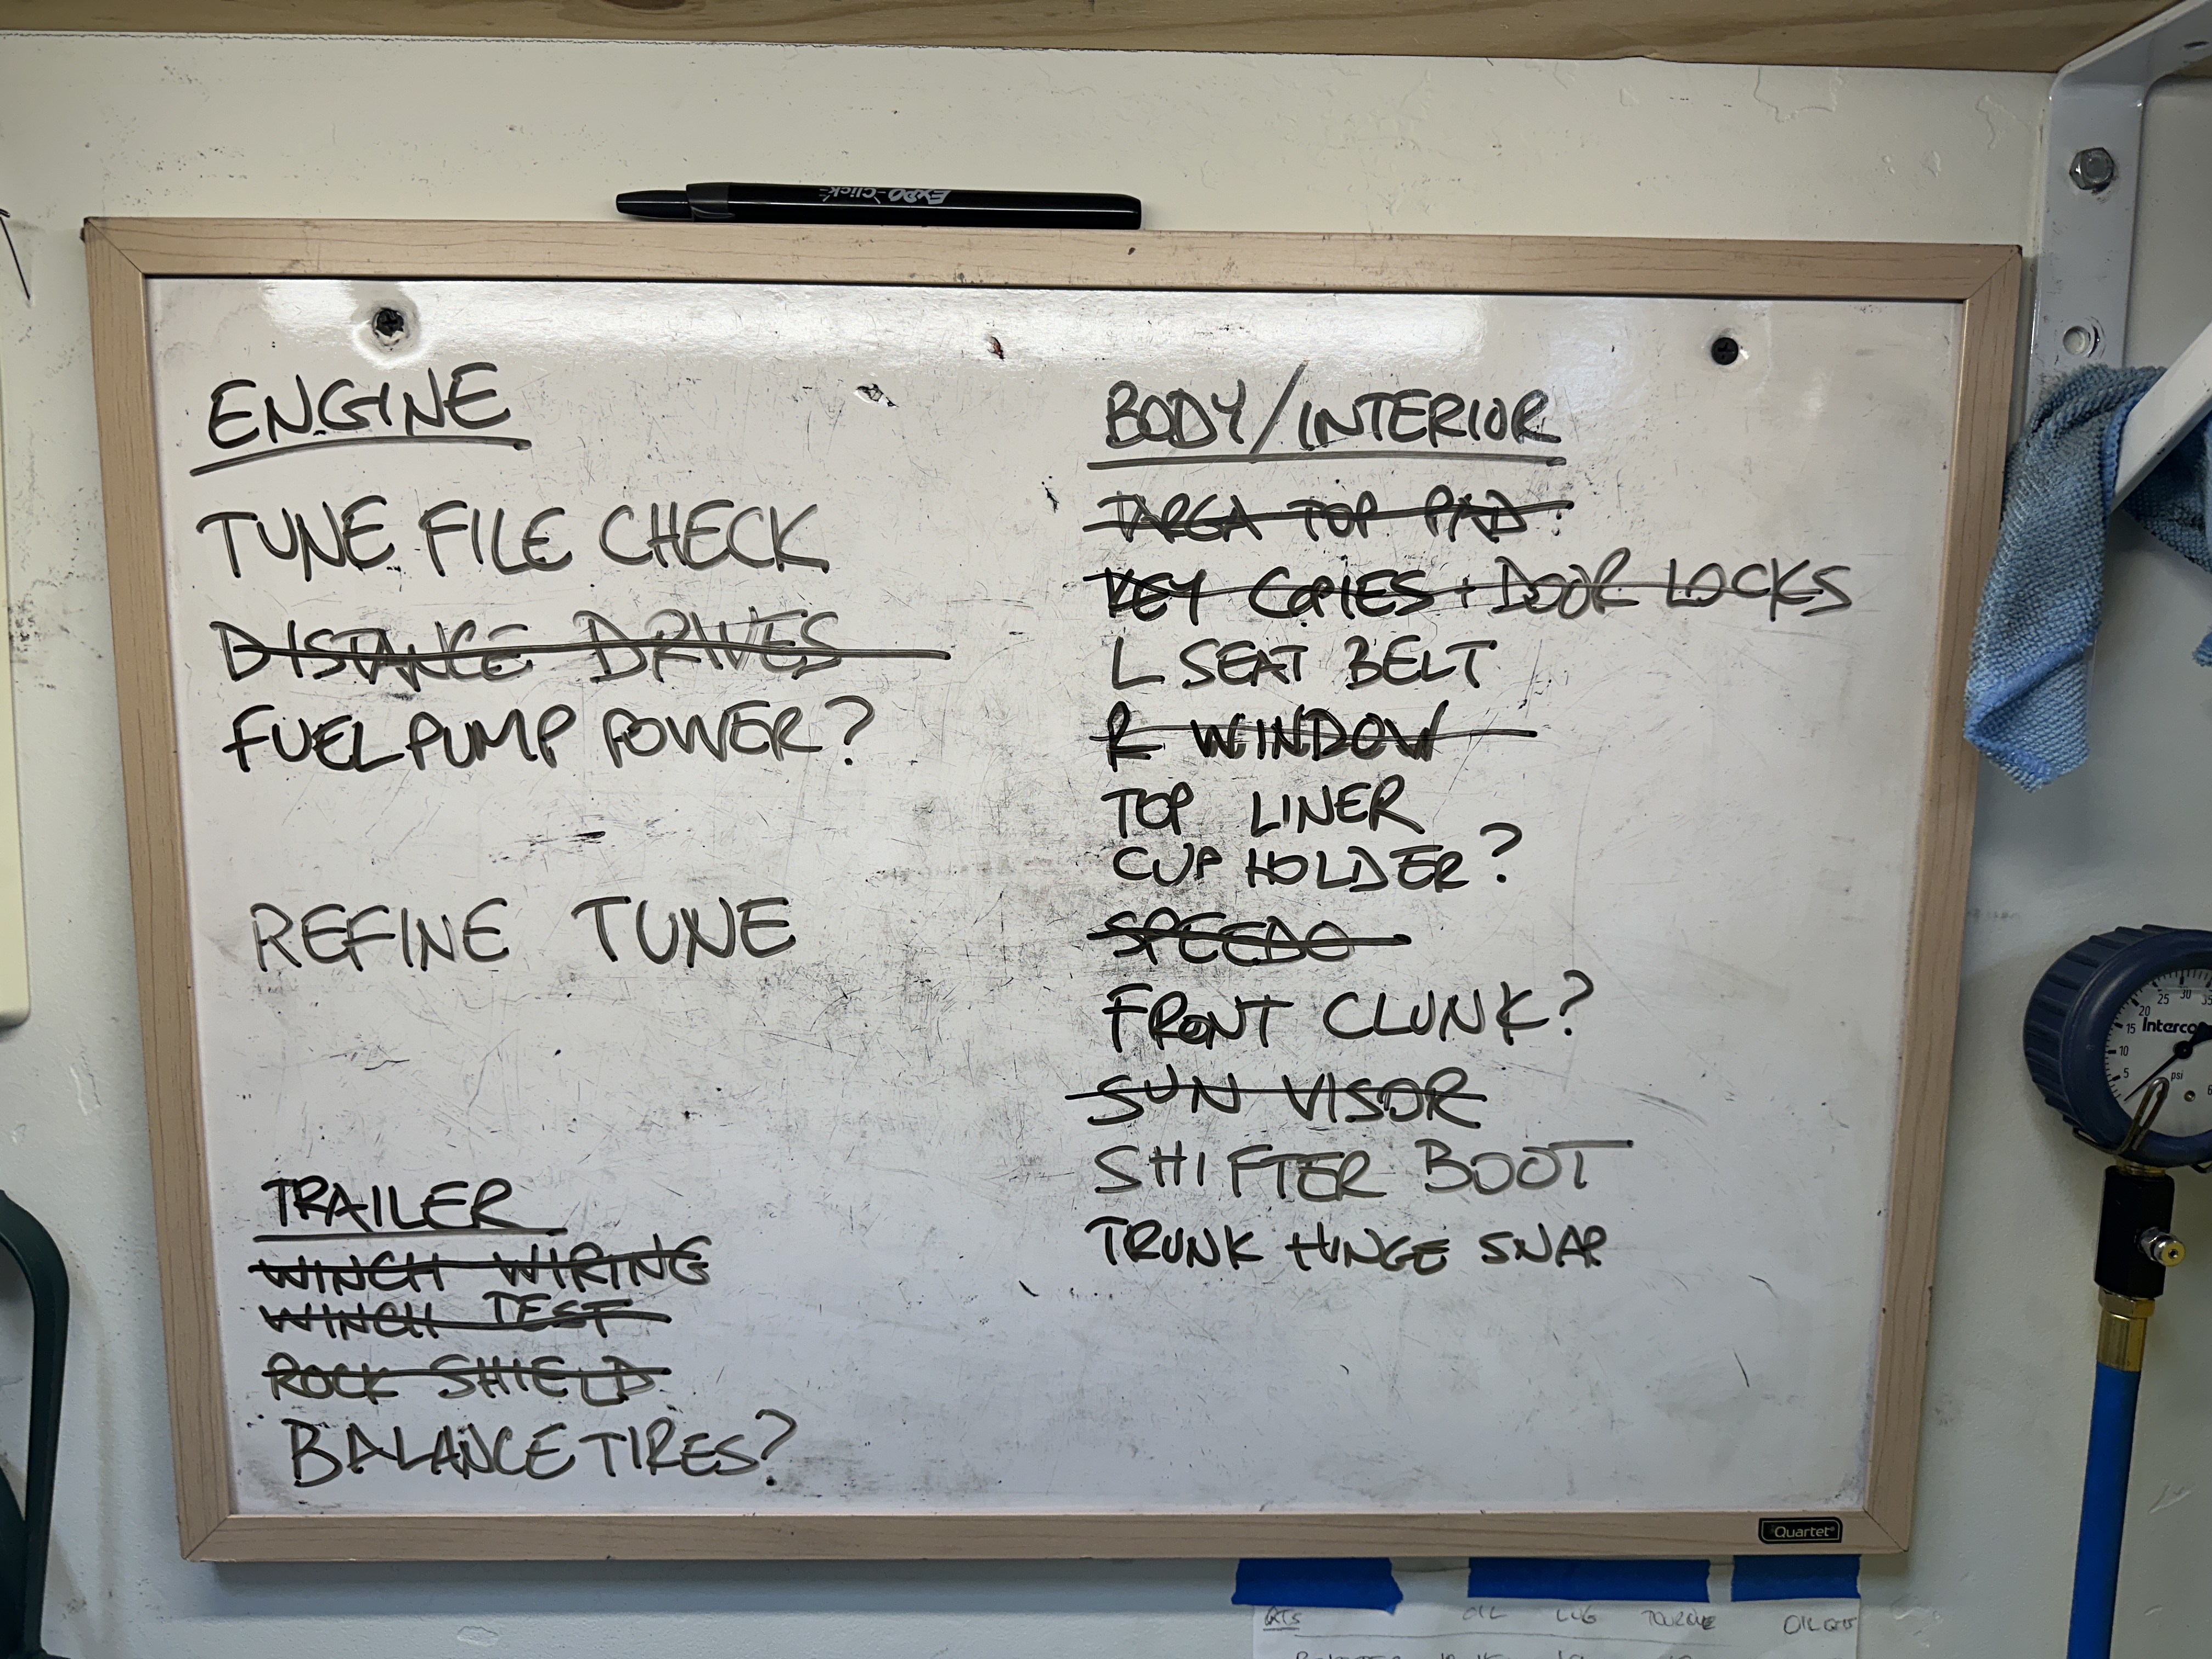 EXPO Click
ENGINE
TUNE FILE CHECK
DISTANCE DRIVES
FUEL PUMP POWER?
REFINE TUNE
TRAILER
WINCH WIRING
WINCH TEST
ROCK SHIELD
BALANCE TIRES?
BODY/INTERIOR
TARGA TOP PAD
KEY COPIES + DOOR LOCKS
L SEAT BELT
R WINDOW
TOP LINER
CUP HOLDER?
SPEEDO
FRONT CLUNK?
SUN VISOR
SHIFTER BOOT
TRUNK HINGE SNAP
Quartet
5 10 15 20 25 30 35
psi
QTS OIL LUG TOURQUE OIL QTS